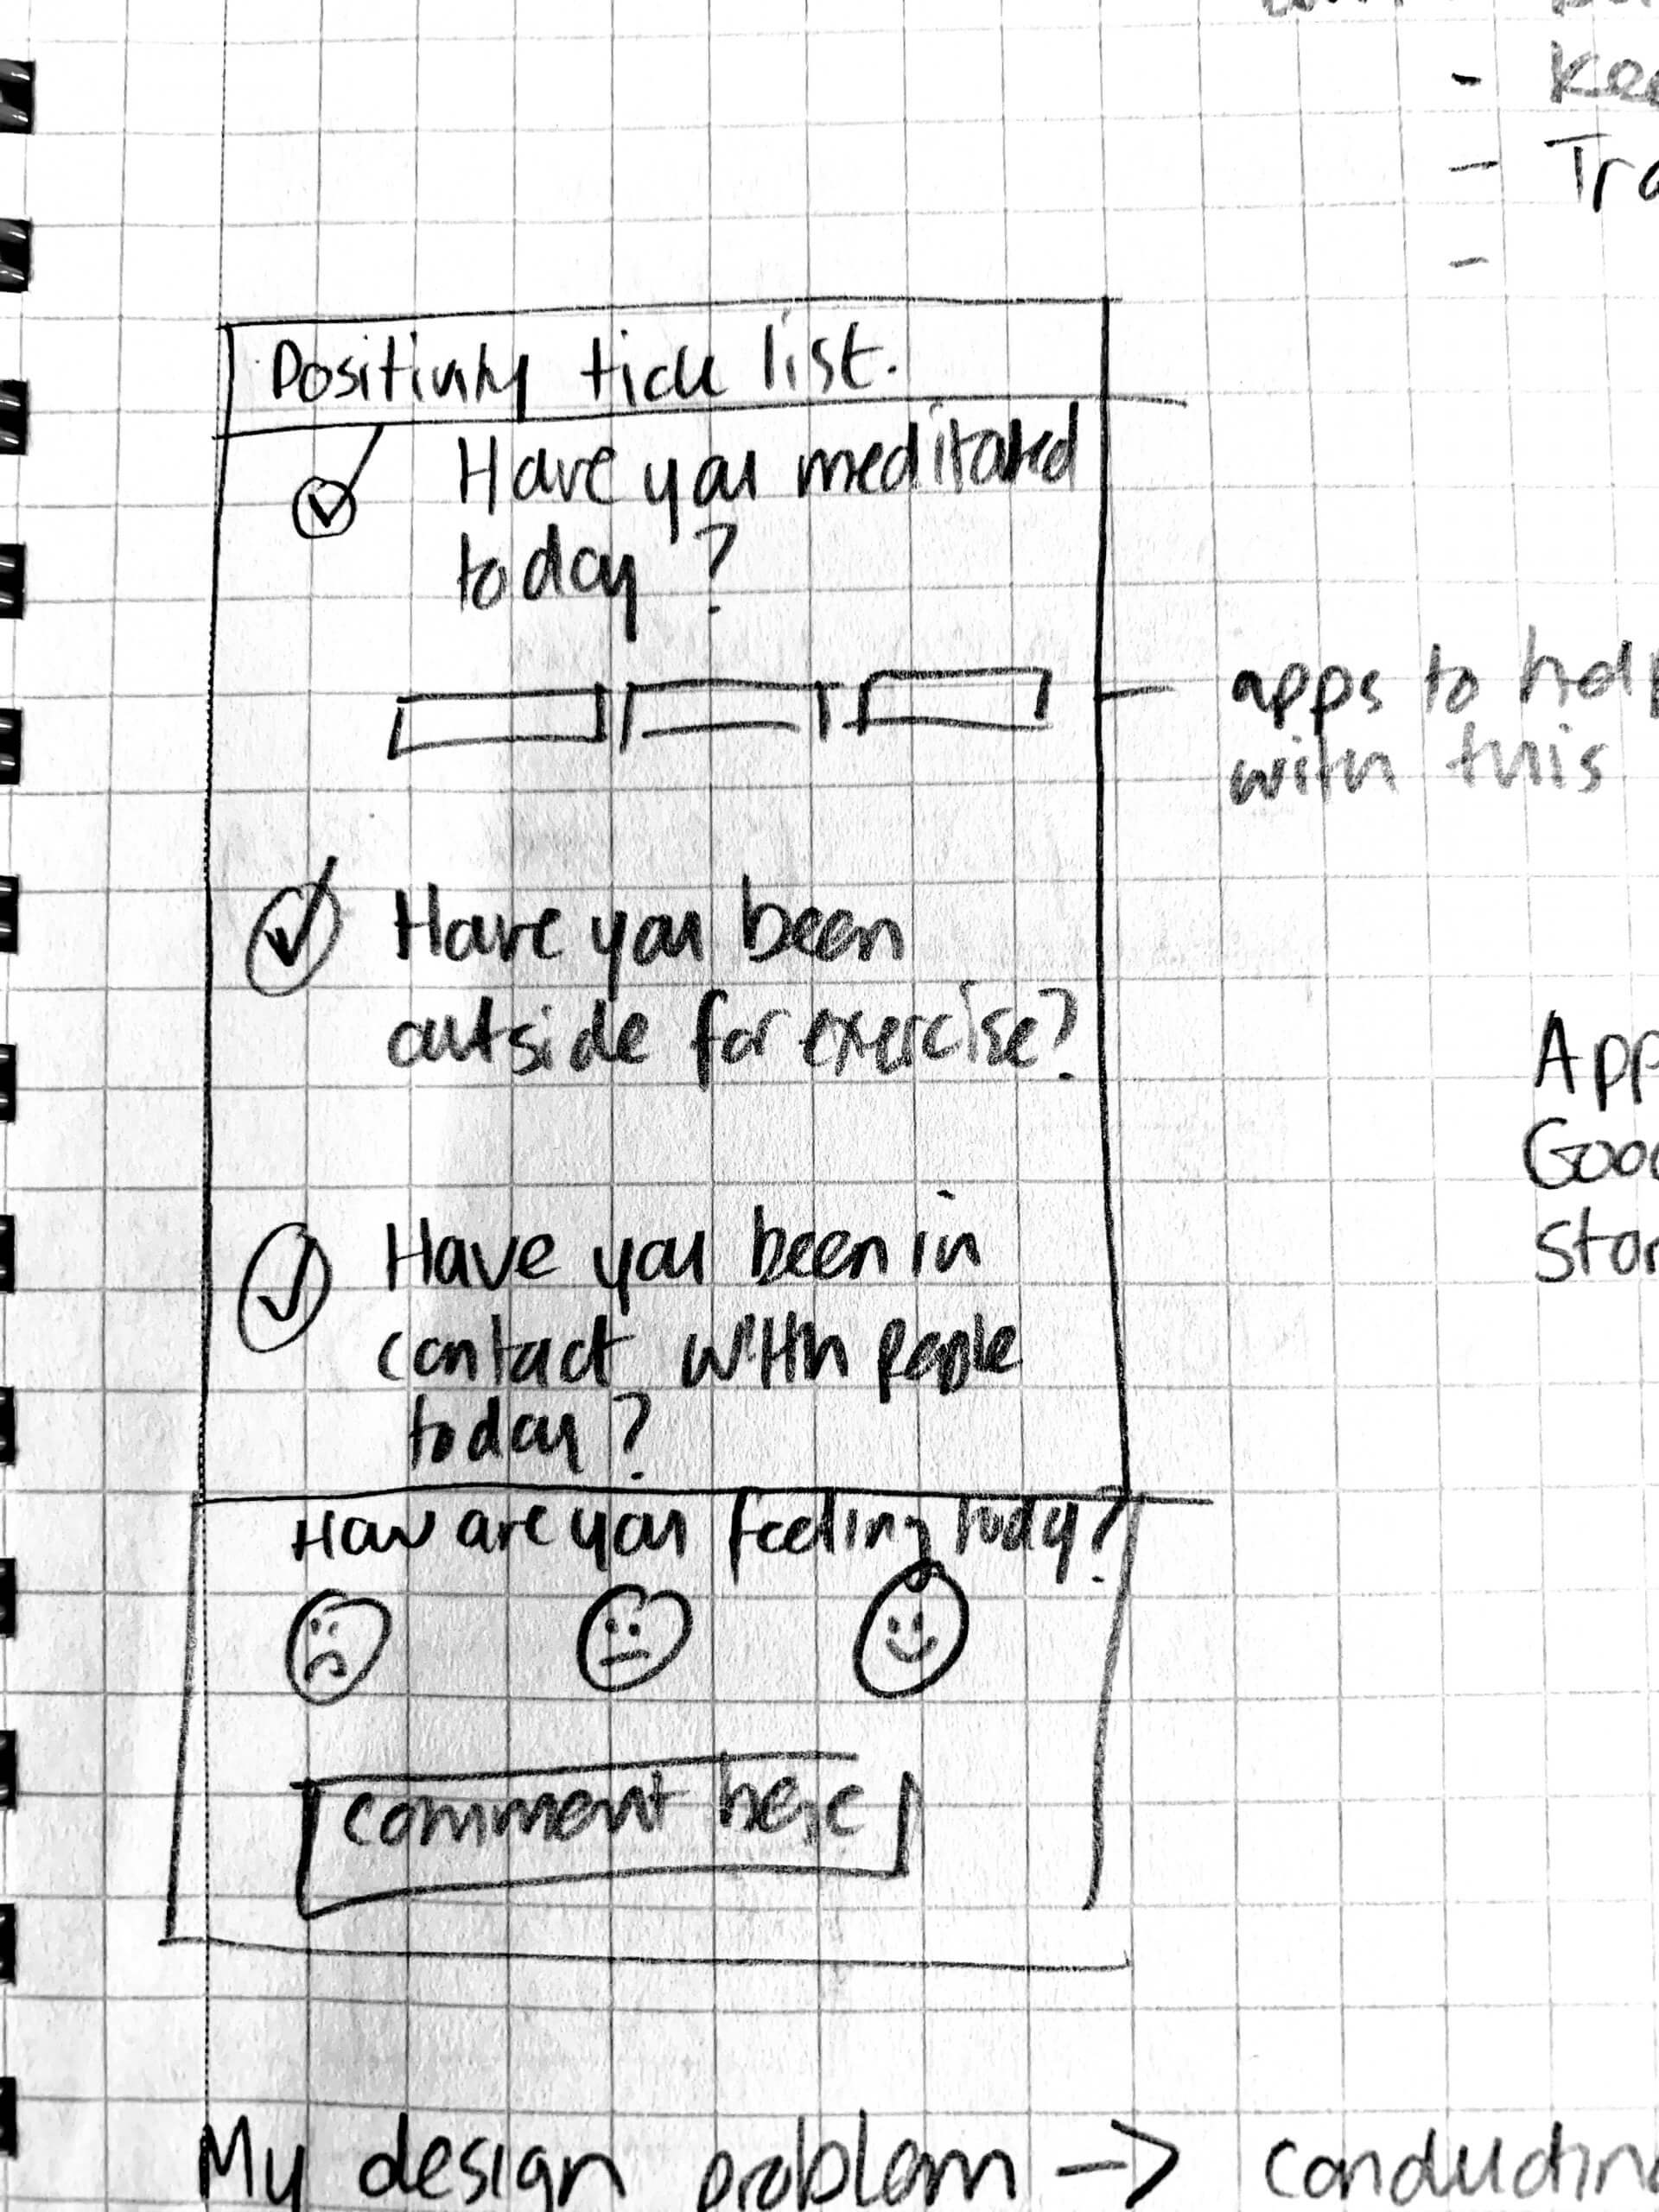 - Kee
- Tra
-
Positivity tick list.
Have you meditated
today?
apps to help
with this
Have you been
outside for exercise?
App
Goo
Stor
Have you been in
contact with people
today?
How are you feeling today?
comment here
My design problem -> conducting